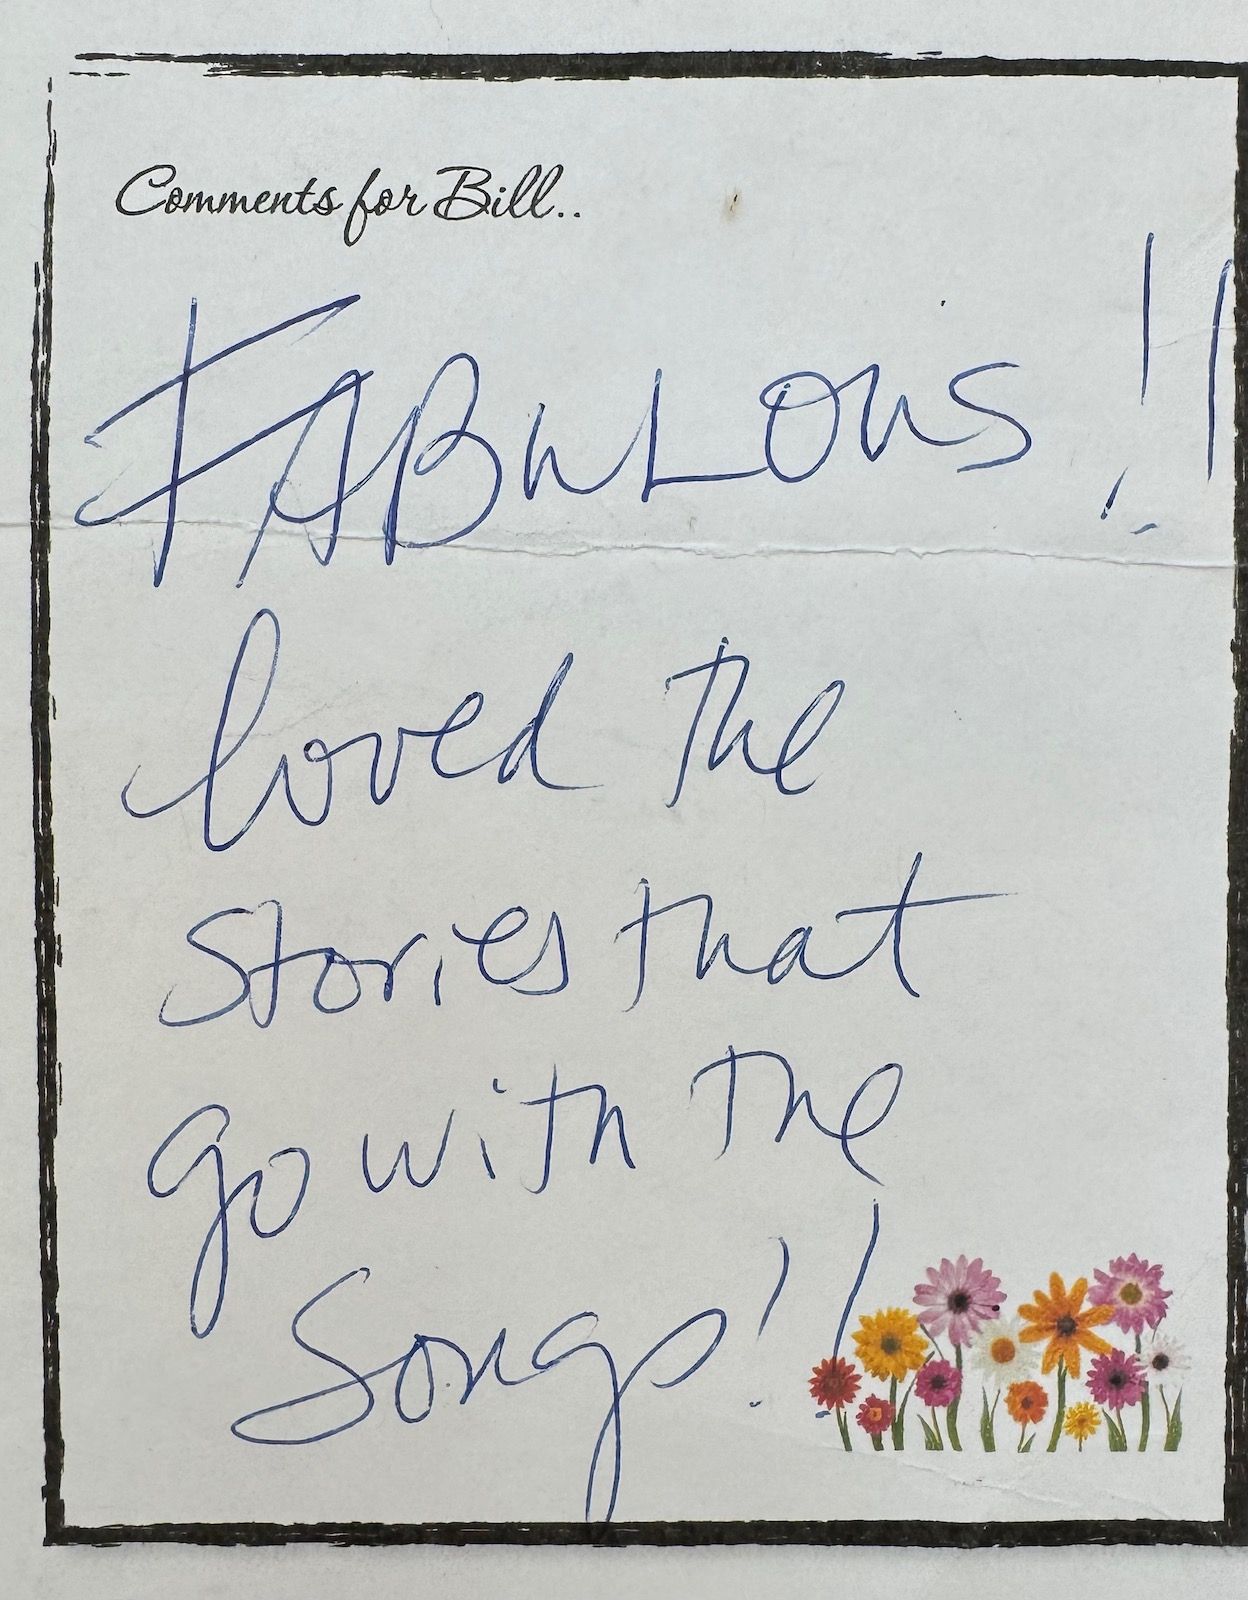 Comments for Bill..
FABULOUS!!
loved the
stories that
go with the
songs!!